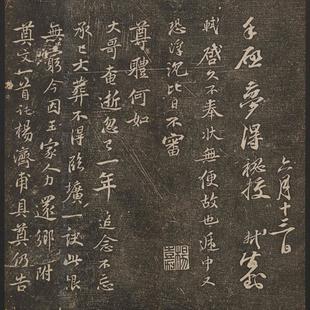 六月十三日
手啟夢得祕校 軾
軾啟久不奉狀無便故也遞中又
恐浮沉比日不審
尊體何如
大哥奄逝忽已一年追念不忘
承已大葬不得臨壙一訣此恨
無窮今因王家人力還鄉附
奠文一首託楊濟甫具奠仍告